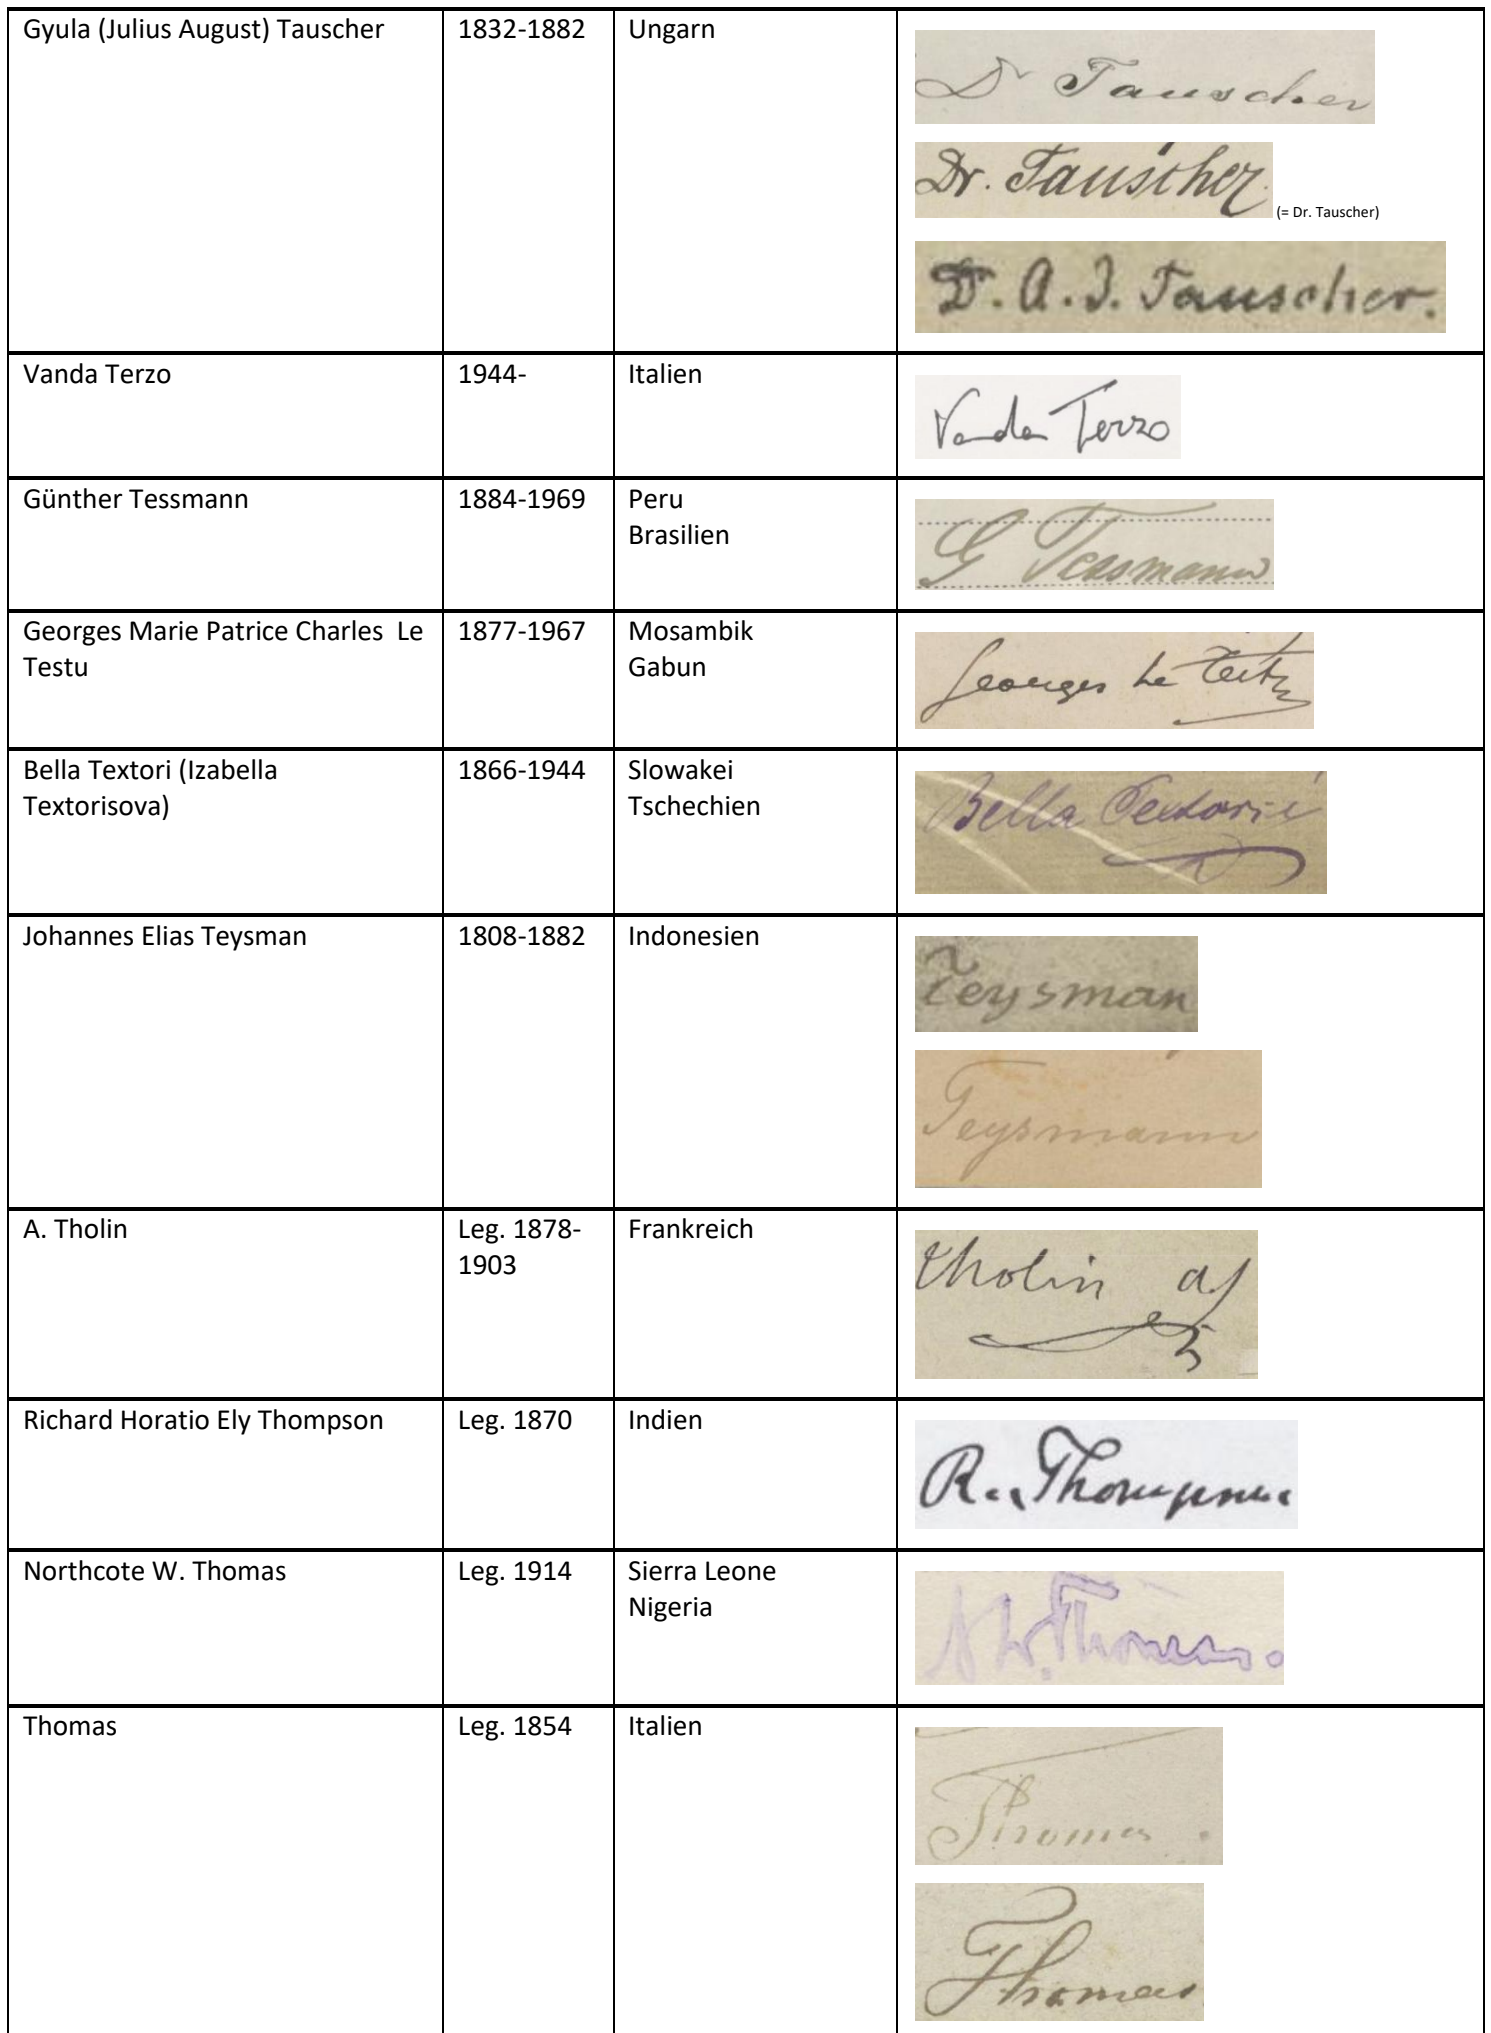 Gyula (Julius August) Tauscher 1832-1882 Ungarn
Dr Tauscher
Dr. Tauscher. (= Dr. Tauscher)
Dr. A. J. Tauscher.
Vanda Terzo 1944- Italien
Vanda Terzo
Günther Tessmann 1884-1969 Peru
Brasilien
G Tessmann
Georges Marie Patrice Charles Le 1877-1967 Mosambik
Testu Gabun
Georges Le Testu
Bella Textori (Izabella 1866-1944 Slowakei
Textorisova) Tschechien
Bella Textoris
Johannes Elias Teysman 1808-1882 Indonesien
Teysman
Teysmann
A. Tholin Leg. 1878- Frankreich
1903
Tholin
Richard Horatio Ely Thompson Leg. 1870 Indien
R. Thompson
Northcote W. Thomas Leg. 1914 Sierra Leone
Nigeria
N W. Thomas.
Thomas Leg. 1854 Italien
Thomas.
Thomas